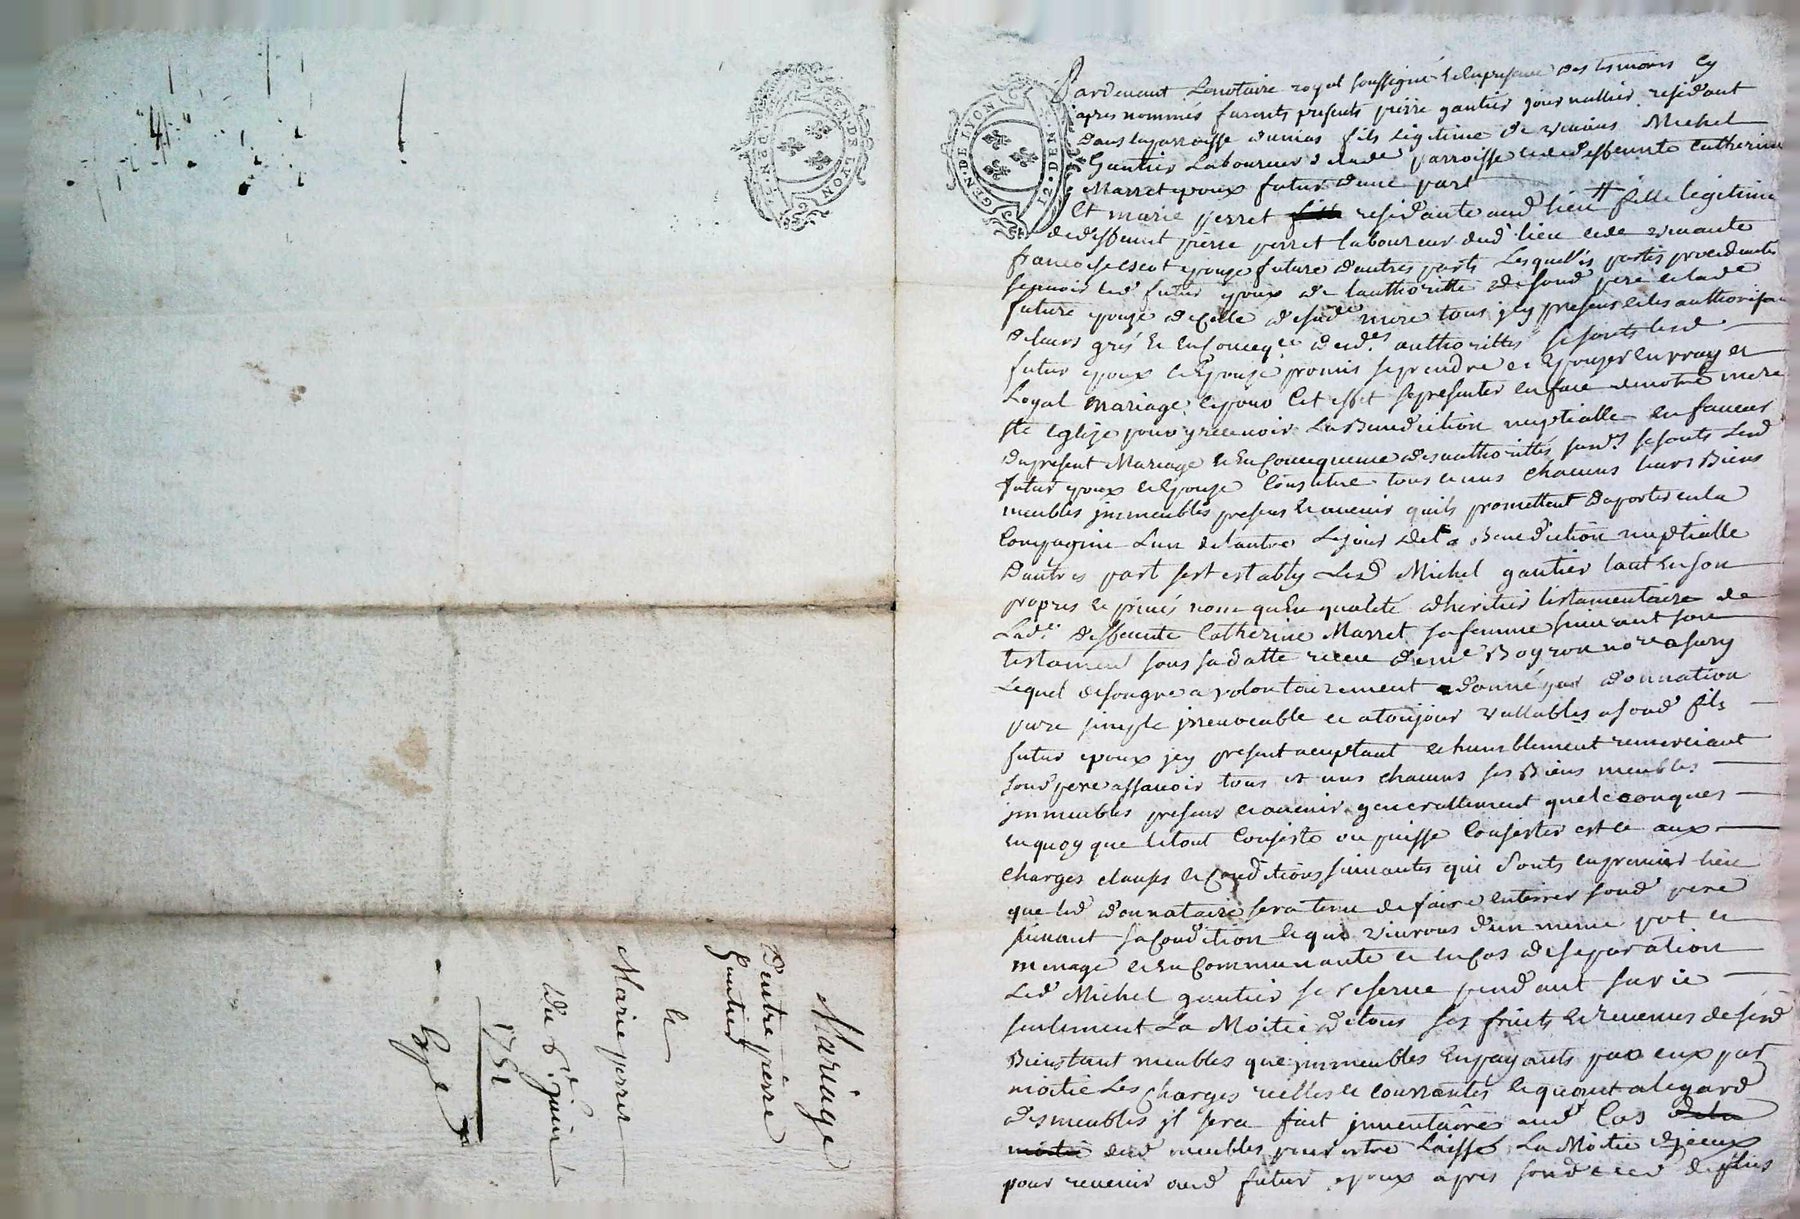 GEN·DE·LYON
12·DEN
GEN·DE·LYON
12·DEN
Mariage
D'entre pierre
Gautier
et
Marie perret
du 6e juin
1751
Exp
Pardevant Lenotaire royal soussigné et enpresence des tesmoins cy
apres nommés furents presents pierre gautier journallier residant
dans laparroisse dunias fils legitime de vivans Michel
Gautier Laboureur de lade parroisse et de deffeunte Catherine
Marret epoux futur dune part
Et marie perret residante aud lieu fille legitime
de deffeunt pierre perret laboureur dud lieu et de vivante
francoise escot epouse future d'autres parts Lesquelles parties procedantes
scavoir led futur epoux de lauthoritte de sond pere et lade
future epouse de Celle de sade mere tous jcy presens et les authorisan
de leurs grés et en Conceqce desdes authorittes se sonts lesd
futur epoux et Epouse promis se prendre et Epouser en vray et
Loyal Mariage, et pour Cet effet se presenter en face de notre mere
ste Eglize pour y recevoir La Benediction nuptialle en faveur
Dupresent Mariage et En Concequence des authorittés susd. se sonts Lesd
futur epoux et Epouse Constitué tous et uns chacuns leurs Biens
meubles jmmeubles presens et avenir quils promettent daporter en la
Compagnie Lun delautre Lejour de la Benediction nuptialle
Dautres part sest estably Led Michel gautier tant En son
propres et privés nom qu'En qualité d'heritier testamentaire de
Lade deffeunte Catherine Marret sa femme suivant son
testament sous sa datte receu de me Boyron nore a sury
Lequel de son gre a volontairement donné par donnation
pure simple jrrevocable et a toujour vallables a sond fils
futur epoux jcy present aceptant et humblement remerciant
sond pere assavoir tous et uns chacuns ses Biens meubles
jmmeubles presens et avenir generallement quelconques
en quoy que le tout Consiste ou puisse Consister est ce aux
Charges clauses et Conditions suivantes qui sonts en premier lieu
que led donnataire sera tenu de faire enterrer sond pere
suivant sa Condition et que vivrons d'un meme pot et
menage et En Communante et en Cas de separation
Led Michel gautier se reserve pendant sa vie
seulement La Moitie de tous ses fruits et revenus de sesd
Biens tant meubles que jmmeubles En payants par eux par
moitie Les Charges reelles et Courrantes et quant a legard
des meubles jl sera fait jnventaires aud Cas
desd meubles pour estre Laissé La Moitie djceux
pour revenir aud futur epoux apres sond deced de plus